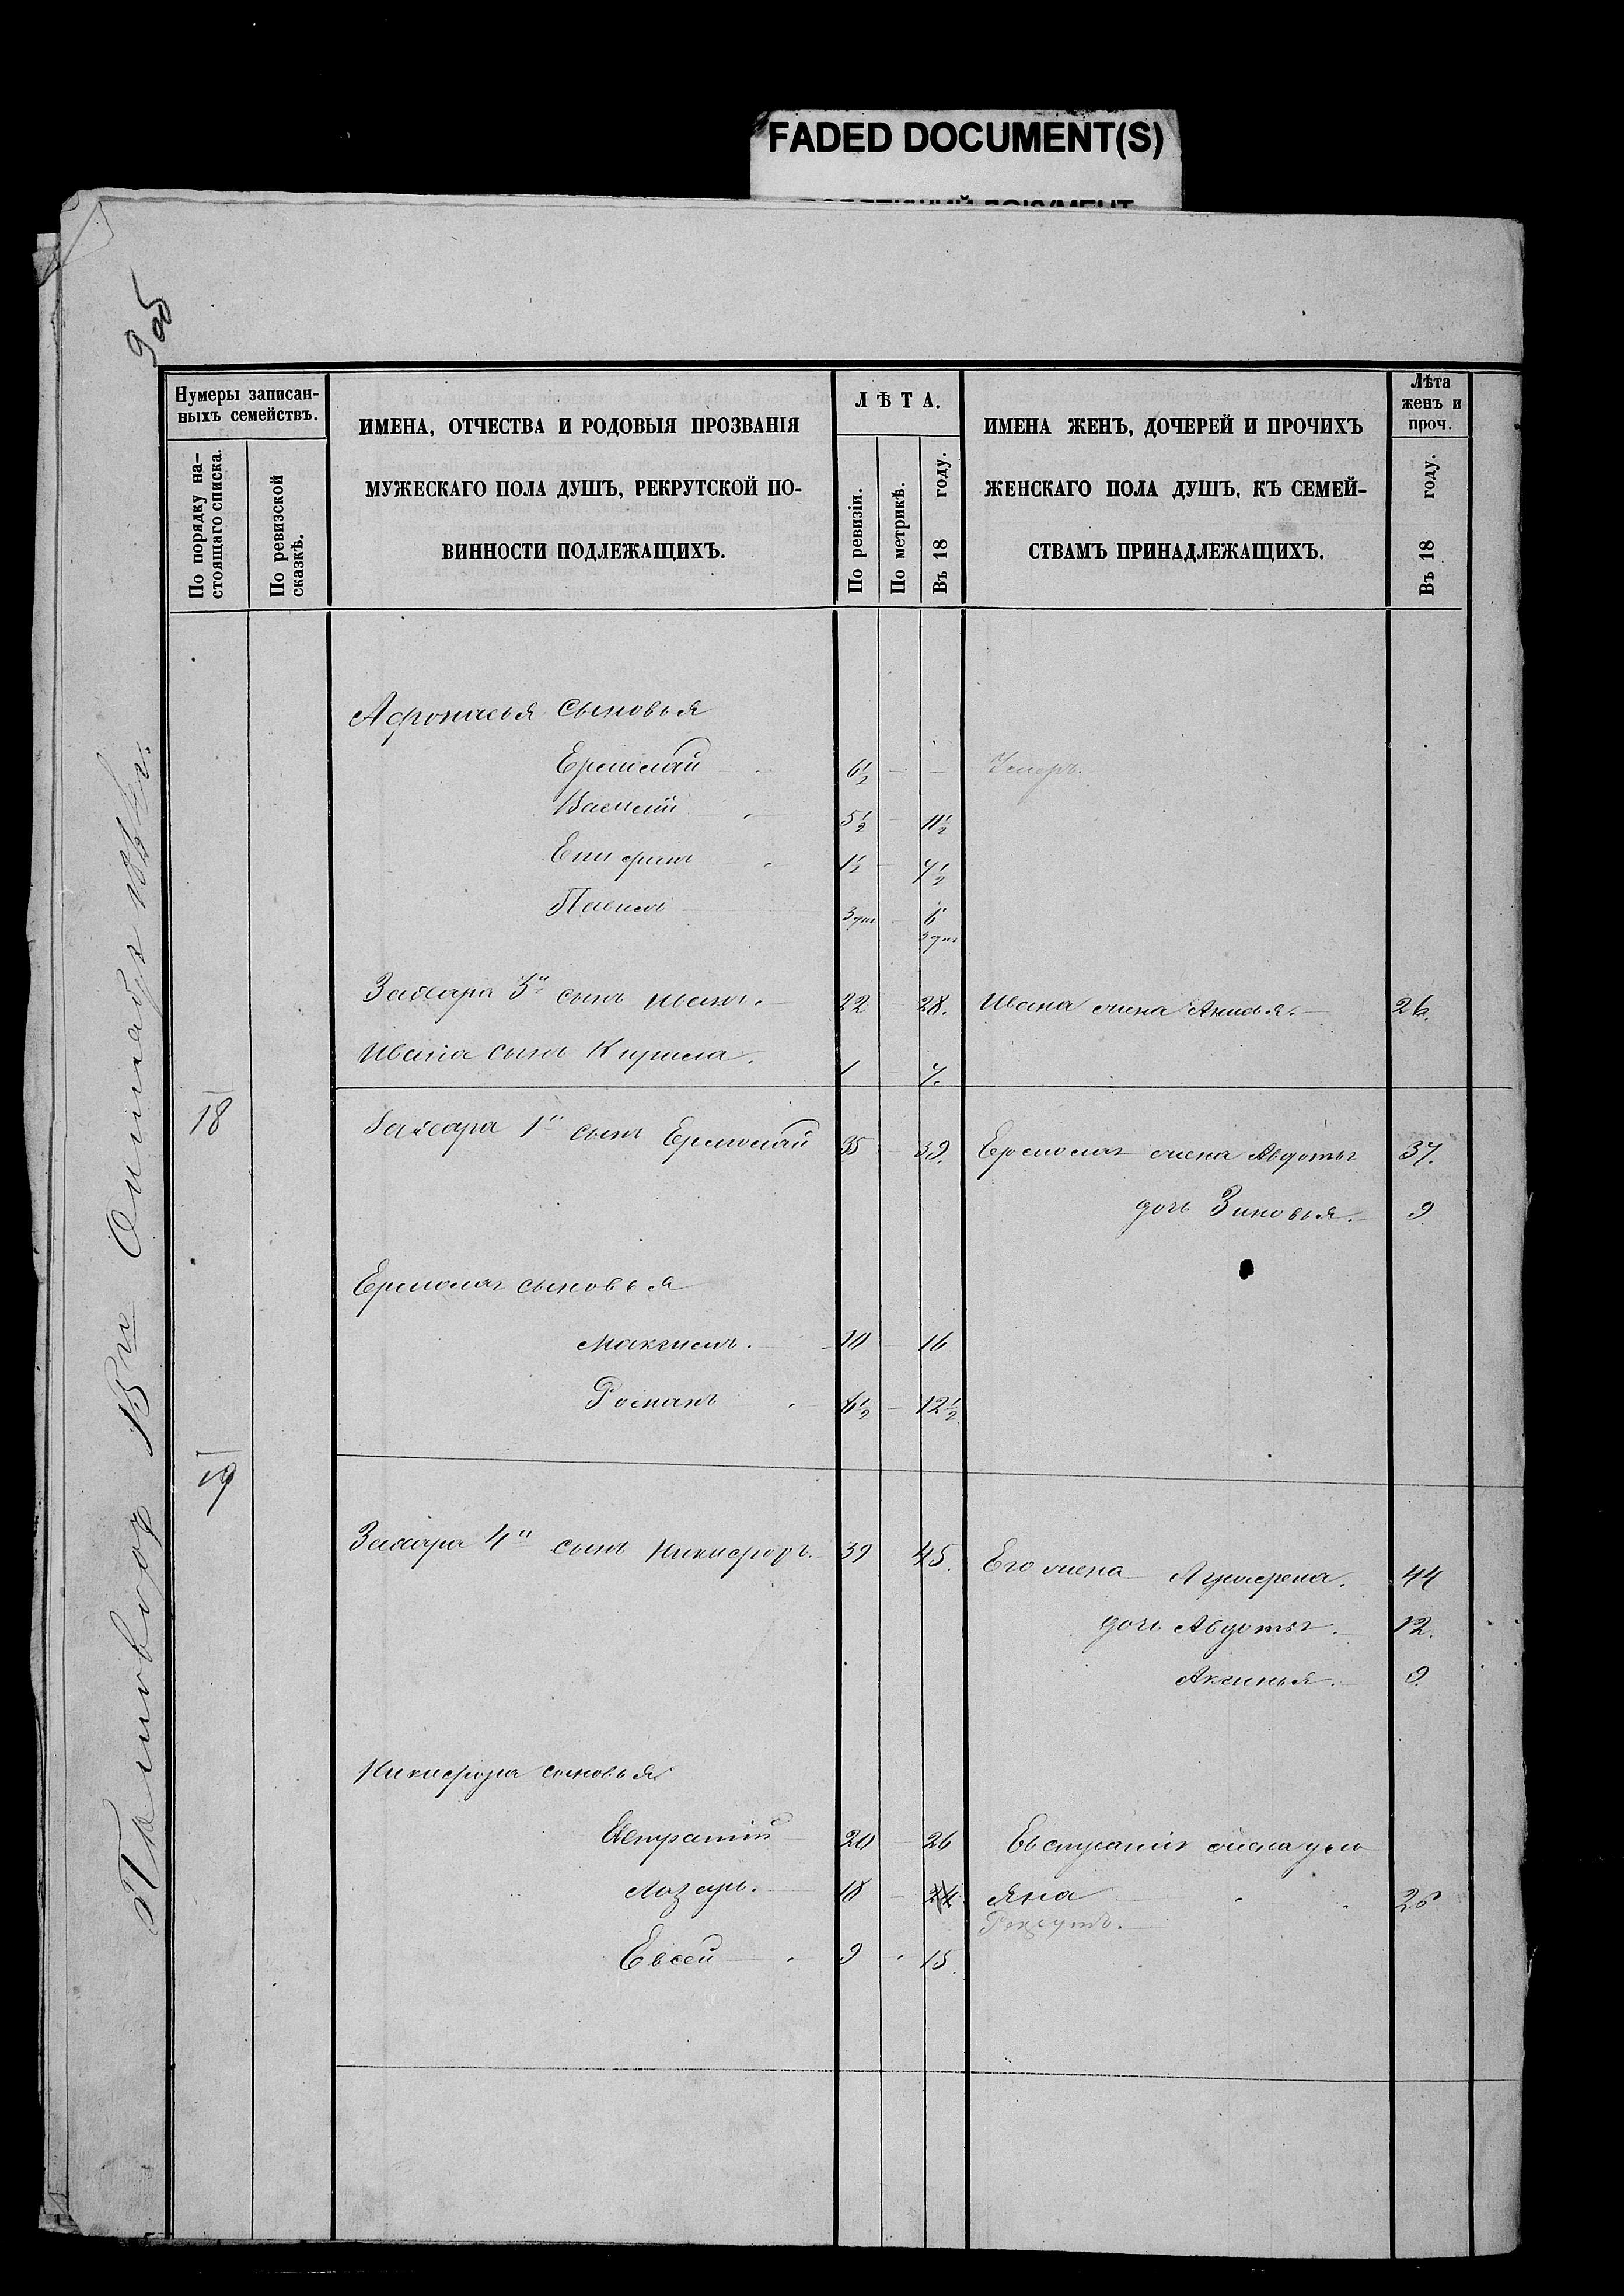 FADED DOCUMENT(S)
9 об
Нумеры записан-
ныхъ семействъ.
По порядку на-
стоящаго списка.
По ревизской
сказкѣ.
ИМЕНА, ОТЧЕСТВА И РОДОВЫЯ ПРОЗВАНІЯ
МУЖЕСКАГО ПОЛА ДУШЪ, РЕКРУТСКОЙ ПО-
ВИННОСТИ ПОДЛЕЖАЩИХЪ.
ЛѢТА.
По ревизіи.
По метрикѣ.
Въ 18 году.
ИМЕНА ЖЕНЪ, ДОЧЕРЕЙ И ПРОЧИХЪ
ЖЕНСКАГО ПОЛА ДУШЪ, КЪ СЕМЕЙ-
СТВАМЪ ПРИНАДЛЕЖАЩИХЪ.
Лѣта
женъ и
проч.
Въ 18 году.
Афонасья сыновья
Ермолай 6½ – – Умеръ.
Василій 5½ – 11½
Епифанъ 1½ – 7½
Павелъ 3 дни – 6
3 дни
Захара 3й сынъ Иванъ. 22 – 28. Ивана жена Анисья. 26.
Ивана сынъ Кирила. 1 – 7.
18 Захара 1й сынъ Ермолай 35 – 39. Ермолая жена Авдотья 37.
дочь Зиновья. 9
Ермолая сыновья
Максимъ. 10 – 16
Романъ 6½ – 12½
19
Захара 4й сынъ Никифоръ. 39 45. Его жена Лукерья. 44
дочь Авдотья. 12.
Аксинья. 9.
Никифора сыновья
Евстратій 20 – 26 Евстратія жена Уль
Лазарь. 18 – 24. яна 25
Рекрутъ.
Евсей 9 15.